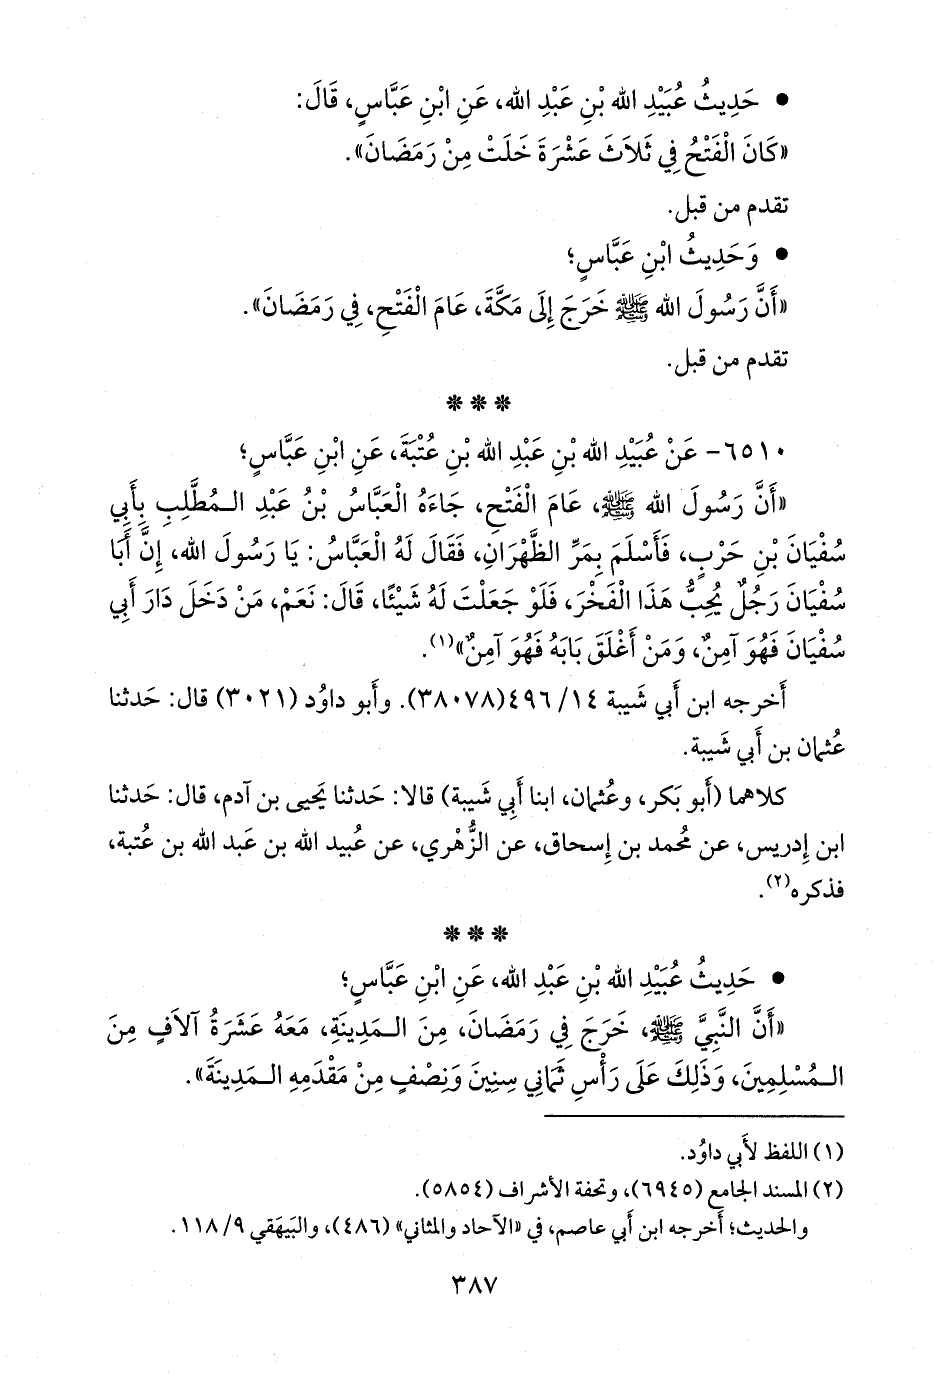 ● حَدِيثُ عُبَيْدِ الله بْنِ عَبْدِ الله، عَنِ ابْنِ عَبَّاسٍ، قَالَ:
«كَانَ الْفَتْحُ فِي ثَلاَثَ عَشْرَةَ خَلَتْ مِنْ رَمَضَانَ».
تقدم من قبل.
● وَحَدِيثُ ابْنِ عَبَّاسٍ؛
«أَنَّ رَسُولَ الله ﷺ خَرَجَ إِلَى مَكَّةَ، عَامَ الْفَتْحِ، فِي رَمَضَانَ».
تقدم من قبل.
* * *
٦٥١٠- عَنْ عُبَيْدِ الله بْنِ عَبْدِ الله بْنِ عُتْبَةَ، عَنِ ابْنِ عَبَّاسٍ؛
«أَنَّ رَسُولَ الله ﷺ، عَامَ الْفَتْحِ، جَاءَهُ الْعَبَّاسُ بْنُ عَبْدِ الـمُطَّلِبِ بِأَبِي
سُفْيَانَ بْنِ حَرْبٍ، فَأَسْلَمَ بِمَرِّ الظَّهْرَانِ، فَقَالَ لَهُ الْعَبَّاسُ: يَا رَسُولَ الله، إِنَّ أَبَا
سُفْيَانَ رَجُلٌ يُحِبُّ هَذَا الْفَخْرَ، فَلَوْ جَعَلْتَ لَهُ شَيْئًا، قَالَ: نَعَمْ، مَنْ دَخَلَ دَارَ أَبِي
سُفْيَانَ فَهُوَ آمِنٌ، وَمَنْ أَغْلَقَ بَابَهُ فَهُوَ آمِنٌ»(١).
أَخرجه ابن أَبي شَيبة ١٤/ ٤٩٦(٣٨٠٧٨). وأَبو داوُد (٣٠٢١) قال: حَدثنا
عُثمان بن أَبي شَيبة.
كلاهما (أَبو بَكر، وعُثمان، ابنا أَبي شَيبة) قالا: حَدثنا يَحيى بن آدم، قال: حَدثنا
ابن إِدريس، عن مُحمد بن إِسحاق، عن الزُّهْري، عن عُبيد الله بن عَبد الله بن عُتبة،
فذكره(٢).
* * *
● حَدِيثُ عُبَيْدِ الله بْنِ عَبْدِ الله، عَنِ ابْنِ عَبَّاسٍ؛
«أَنَّ النَّبِيَّ ﷺ، خَرَجَ فِي رَمَضَانَ، مِنَ الـمَدِينَةِ، مَعَهُ عَشَرَةُ آلاَفٍ مِنَ
الـمُسْلِمِينَ، وَذَلِكَ عَلَى رَأْسِ ثَمَانِي سِنِينَ وَنِصْفٍ مِنْ مَقْدَمِهِ الـمَدِينَةَ».
(١) اللفظ لأَبي داوُد.
(٢) المسند الجامع (٦٩٤٥)، وتحفة الأشراف (٥٨٥٤).
والحديث؛ أَخرجه ابن أَبي عاصم، في «الآحاد والمثاني» (٤٨٦)، والبَيهَقي ٩/ ١١٨.
٣٨٧